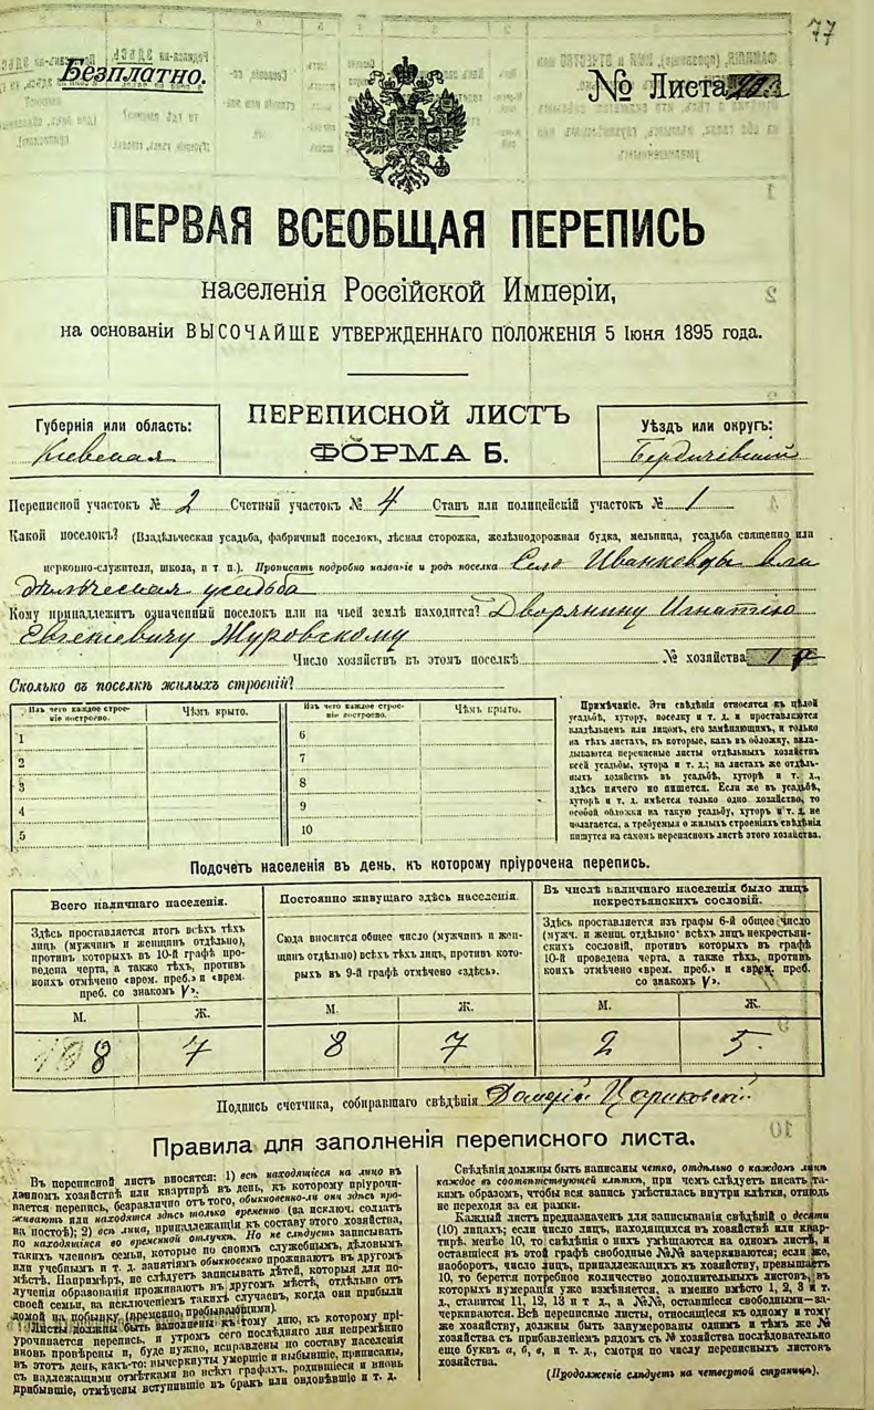 77
Безплатно.
№ Листа
ПЕРВАЯ ВСЕОБЩАЯ ПЕРЕПИСЬ
населенія Россійской Имперіи,
на основаніи ВЫСОЧАЙШЕ УТВЕРЖДЕННАГО ПОЛОЖЕНІЯ 5 Іюня 1895 года.
Губернія или область:
Кіевская
ПЕРЕПИСНОЙ ЛИСТЪ
ФОРМА Б.
Уѣздъ или округъ:
Бердичевскій
Переписной участокъ № 2 Счетный участокъ № 4 Станъ или полицейскій участокъ № 1
Какой поселокъ? (Владѣльческая усадьба, фабричный поселокъ, лѣсная сторожка, желѣзнодорожная будка, мельница, усадьба священно или
церковно-служителя, школа, и т. п.). Прописать подробно названіе и родъ поселка Село Иванковцы вла
дѣльческая усадьба
Кому принадлежитъ означенный поселокъ или на чьей землѣ находится? Дворянину Игнатію
Евгеніевичу Журовскому
Число хозяйствъ въ этомъ поселкѣ № хозяйства 1
Сколько въ поселкѣ жилыхъ строеній?
Изъ чего каждое строе-
ніе построено.
Чѣмъ крыто.
Изъ чего каждое строе-
ніе построено.
Чѣмъ крыто.
1
2
3
4
5
6
7
8
9
10
Примѣчаніе. Эти свѣдѣнія относятся къ цѣлой
усадьбѣ, хутору, поселку и т. д. и проставляются
владѣльцемъ или лицомъ, его замѣняющимъ, и только
на тѣхъ листахъ, въ которые, какъ въ обложку, вкла-
дываются переписные листы отдѣльныхъ хозяйствъ
всей усадьбы, хутора и т. д.; на листахъ же отдѣль-
ныхъ хозяйствъ въ усадьбѣ, хуторѣ и т. д.,
здѣсь ничего не пишется. Если же въ усадьбѣ,
хуторѣ и т. д. имѣется только одно хозяйство, то
особой обложки на такую усадьбу, хуторъ и т. д. не
полагается, а требуемыя о жилыхъ строеніяхъ свѣдѣнія
пишутся на самомъ переписномъ листѣ этого хозяйства.
Подсчетъ населенія въ день, къ которому пріурочена перепись.
Всего наличнаго населенія.
Здѣсь проставляется итогъ всѣхъ тѣхъ
лицъ (мужчинъ и женщинъ отдѣльно),
противъ которыхъ въ 10-й графѣ про-
ведена черта, а также тѣхъ, противъ
коихъ отмѣчено «врем. преб.» и «врем.
преб. со знакомъ V».
М. Ж.
8 7
Постоянно живущаго здѣсь населенія.
Сюда вносится общее число (мужчинъ и жен-
щинъ отдѣльно) всѣхъ тѣхъ лицъ, противъ кото-
рыхъ въ 9-й графѣ отмѣчено «здѣсь».
М. Ж.
8 7
Въ числѣ наличнаго населенія было лицъ
некрестьянскихъ сословій.
Здѣсь проставляется изъ графы 6-й общее число
(мужч. и женщ. отдѣльно) всѣхъ лицъ некрестьян-
скихъ сословій, противъ которыхъ въ графѣ
10-й проведена черта, а также тѣхъ, противъ
коихъ отмѣчено «врем. преб.» и «врем. преб.
со знакомъ V».
М. Ж.
2 5.
Подпись счетчика, собиравшаго свѣдѣнія
Правила для заполненія переписного листа.
Въ переписной листъ вносятся: 1) всѣ находящіеся на лицо въ
данномъ хозяйствѣ или квартирѣ въ день, къ которому пріурочи-
вается перепись, безразлично отъ того, обыкновенно-ли они здѣсь про-
живаютъ или находятся здѣсь только временно (за исключ. солдатъ
на постоѣ); 2) всѣ лица, принадлежащія къ составу этого хозяйства,
но находящіяся во временной отлучкѣ. Но не слѣдуетъ записывать
такихъ членовъ семьи, которые по своимъ служебнымъ, дѣловымъ
или учебнымъ и т. д. занятіямъ обыкновенно проживаютъ въ другомъ
мѣстѣ. Напримѣръ, не слѣдуетъ записывать дѣтей, которыя для по-
лученія образованія проживаютъ въ другомъ мѣстѣ, отдѣльно отъ
своей семьи, за исключеніемъ такихъ случаевъ, когда они прибыли
домой на побывку (временно пребывающими).
Листы должны быть заполнены къ тому дню, къ которому прі-
урочивается перепись, и утромъ сего послѣдняго дня непремѣнно
вновь провѣрены и, буде нужно, исправлены по составу населенія
въ этотъ день, какъ-то: вычеркнуты умершіе и выбывшіе, приписаны,
съ надлежащими отмѣтками во всѣхъ графахъ, родившіеся и вновь
прибывшіе, отмѣчены вступившіе въ бракъ или овдовѣвшіе и т. д.
Свѣдѣнія должны быть написаны четко, отдѣльно о каждомъ лицѣ
каждое въ соотвѣтствующей клѣткѣ, при чемъ слѣдуетъ писать та-
кимъ образомъ, чтобы вся запись умѣстилась внутри клѣтки, отнюдь
не переходя за ея рамки.
Каждый листъ предназначенъ для записыванія свѣдѣній о десяти
(10) лицахъ; если число лицъ, находящихся въ хозяйствѣ или квар-
тирѣ, менѣе 10, то свѣдѣнія о нихъ умѣщаются на одномъ листѣ, и
оставшіеся въ этой графѣ свободные №№ зачеркиваются; если же,
наоборотъ, число лицъ, принадлежащихъ къ хозяйству, превышаетъ
10, то берется потребное количество дополнительныхъ листовъ, въ
которыхъ нумерація уже измѣняется, а именно вмѣсто 1, 2, 3 и т.
д., ставится 11, 12, 13 и т. д., а №№, оставшіеся свободными—за-
черкиваются. Всѣ переписные листы, относящіеся къ одному и тому
же хозяйству, должны быть занумерованы однимъ и тѣмъ же №
хозяйства съ прибавленіемъ рядомъ съ № хозяйства послѣдовательно
еще буквъ а, б, в, и т. д., смотря по числу переписныхъ листовъ
хозяйства.
(Продолженіе слѣдуетъ на четвертой страницѣ).